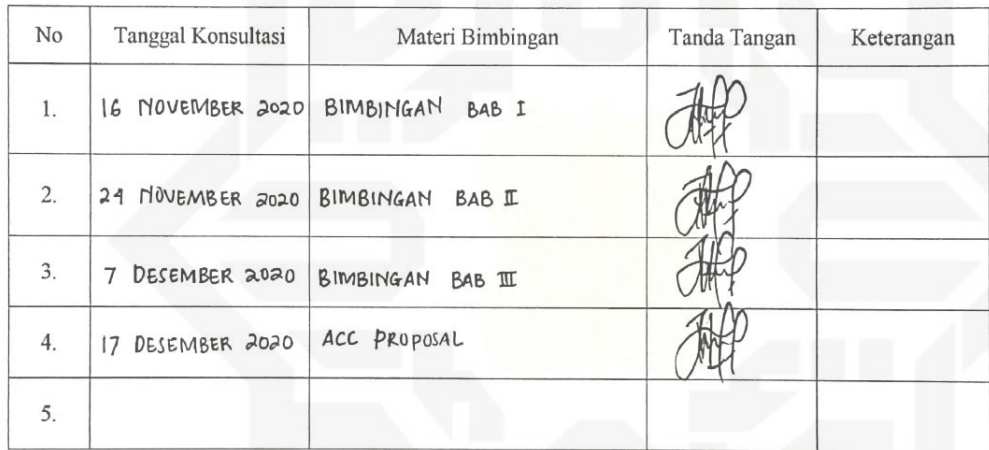 No Tanggal Konsultasi Materi Bimbingan Tanda Tangan Keterangan
1. 16 NOVEMBER 2020 BIMBINGAN BAB I
2. 24 NOVEMBER 2020 BIMBINGAN BAB II
3. 7 DESEMBER 2020 BIMBINGAN BAB III
4. 17 DESEMBER 2020 ACC PROPOSAL
5.